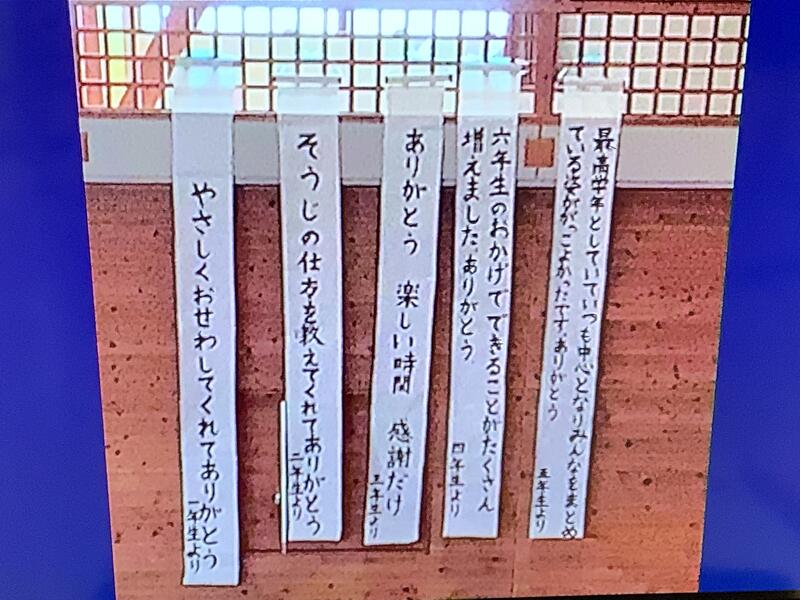 最高学年としていていつも中心となりみんなをまとめ
ている姿がかっこよかったです。ありがとう
五年生より
六年生のおかげでできることがたくさん
増えました。ありがとう
四年生より
ありがとう 楽しい時間 感謝だけ
三年生より
そうじの仕方を教えてくれてありがとう
二年生より
やさしくおせわしてくれてありがとう
一年生より